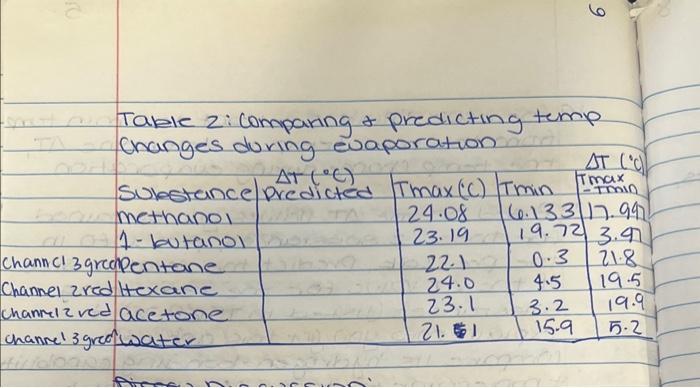 6
Table 2: Comparing & predicting temp
changes during evaporation
Substance ΔT (°C) Predicted Tmax (°C) Tmin ΔT (°C) Tmax - Tmin
methanol 24.08 6.133 17.947
1-butanol 23.19 19.72 3.47
channel 3 green Pentane 22.1 0.3 21.8
Channel 2 red Hexane 24.0 4.5 19.5
channel 2 red acetone 23.1 3.2 19.9
channel 3 green water 21.1 15.9 5.2